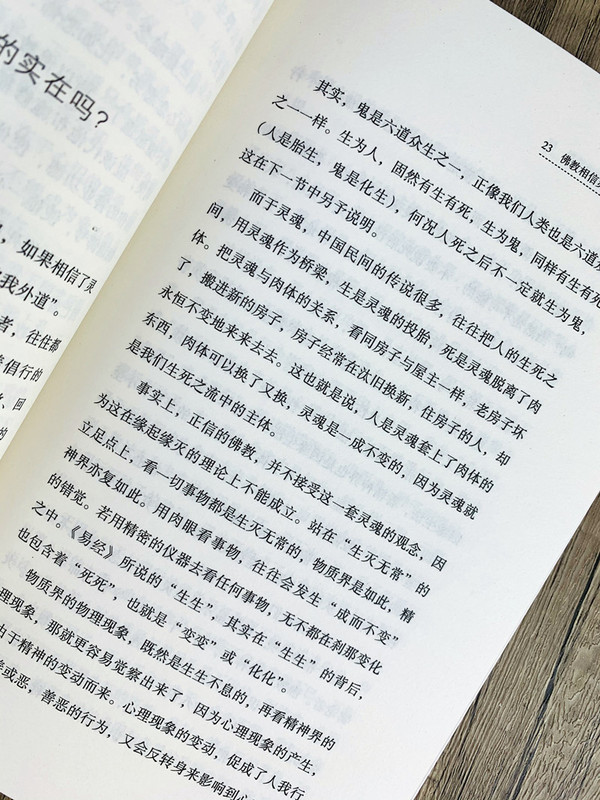 的实在吗？
如果相信了灵
我外道”。
者，往往都
倡行的
回
的
23 佛教相信
其实，鬼是六道众生之一，正像我们人类也是六道
之一一样。生为人，固然有生有死，生为鬼，同样有生有死
（人是胎生，鬼是化生），何况人死之后不一定就生为鬼，
这在下一节中另予说明。
而于灵魂，中国民间的传说很多，往往把人的生死之
间，用灵魂作为桥梁，生是灵魂的投胎，死是灵魂脱离了肉
体。把灵魂与肉体的关系，看同房子与屋主一样，老房子坏
了，搬进新的房子，房子经常在汰旧换新，住房子的人，却
永恒不变地来来去去。这也就是说，人是灵魂套上了肉体的
东西，肉体可以换了又换，灵魂是一成不变的，因为灵魂就
是我们生死之流中的主体。
事实上，正信的佛教，并不接受这一套灵魂的观念，因
为这在缘起缘灭的理论上不能成立。站在“生灭无常”的
立足点上，看一切事物都是生灭无常的，物质界是如此，精
神界亦复如此。用肉眼看事物，往往会发生“成而不变”
的错觉。若用精密的仪器去看任何事物，无不都在刹那变化
之中。《易经》所说的“生生”，其实在“生生”的背后，
也包含着“死死”，也就是“变变”或“化化”。
物质界的物理现象，既然是生生不息的，再看精神界的
理现象，那就更容易觉察出来了，因为心理现象的产生，
由于精神的变动而来。心理现象的变动，促成了人我行
善或恶，善恶的行为，又会反转身来影响到心